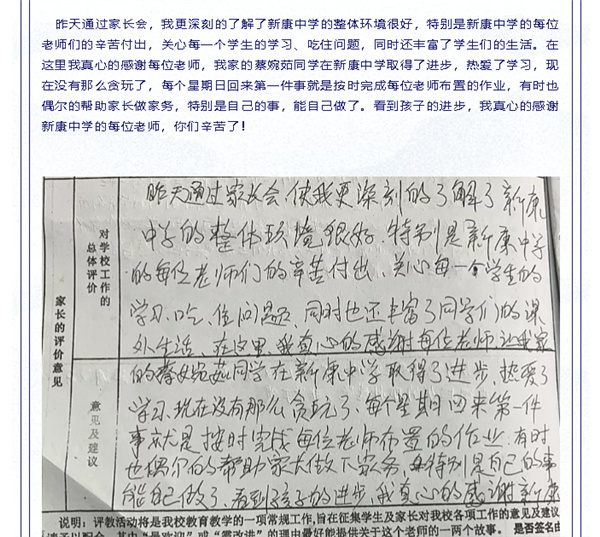 昨天通过家长会，我更深刻的了解了新康中学的整体环境很好，特别是新康中学的每位
老师们的辛苦付出，关心每一个学生的学习、吃住问题，同时还丰富了学生们的生活。在
这里我真心的感谢每位老师，我家的蔡婉茹同学在新康中学取得了进步，热爱了学习，现
在没有那么贪玩了，每个星期日回来第一件事就是按时完成每位老师布置的作业，有时也
偶尔的帮助家长做家务，特别是自己的事，能自己做了。看到孩子的进步，我真心的感谢
新康中学的每位老师，你们辛苦了！
家长的评价意见
对学校工作的
总体评价
昨天通过家长会，使我更深刻的了解了新康
中学的整体环境很好，特别是新康中学
的每位老师们的辛苦付出，关心每一个学生的
学习、吃、住问题，同时也还丰富了同学们的课
外生活，在这里，我真心的感谢每位老师让我家
意见及建议
的蔡婉茹同学在新康中学取得了进步，热爱了
学习，现在没有那么贪玩了，每个星期日回来第一件
事就是按时完成每位老师布置的作业，有时
也偶尔的帮助家长做下家务，特别是自己的事
能自己做了，看到孩子的进步，我真心的感谢新康
说明：评教活动将是我校教育教学的一项常规工作，旨在征集学生及家长对我校各项工作的意见及建议
请予以配合，其中“最欢迎”或“需改进”的理由最好能提供关于这个老师的一两个故事。是否签名由